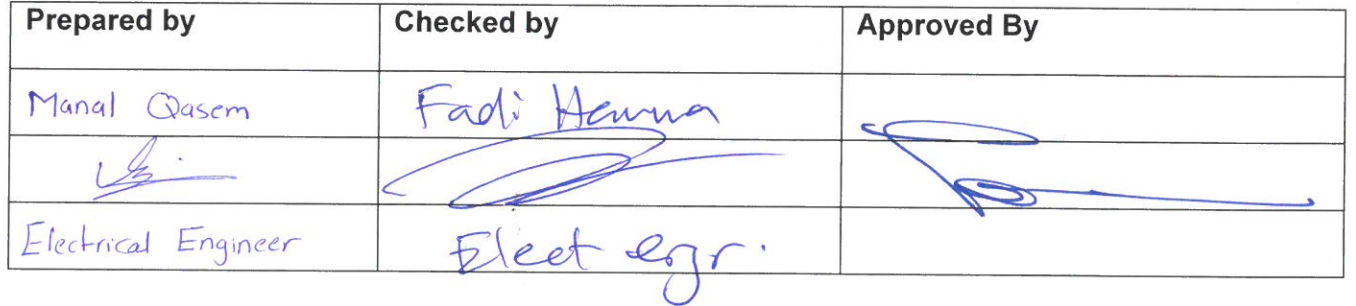 Prepared by Checked by Approved By
Manal Qasem Fadi Hanna
Electrical Engineer Elect engr.